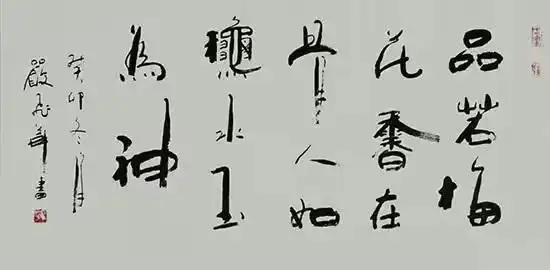 品若梅
花香在
骨人如
龝水玉
為神
癸卯冬月
嚴飛華書